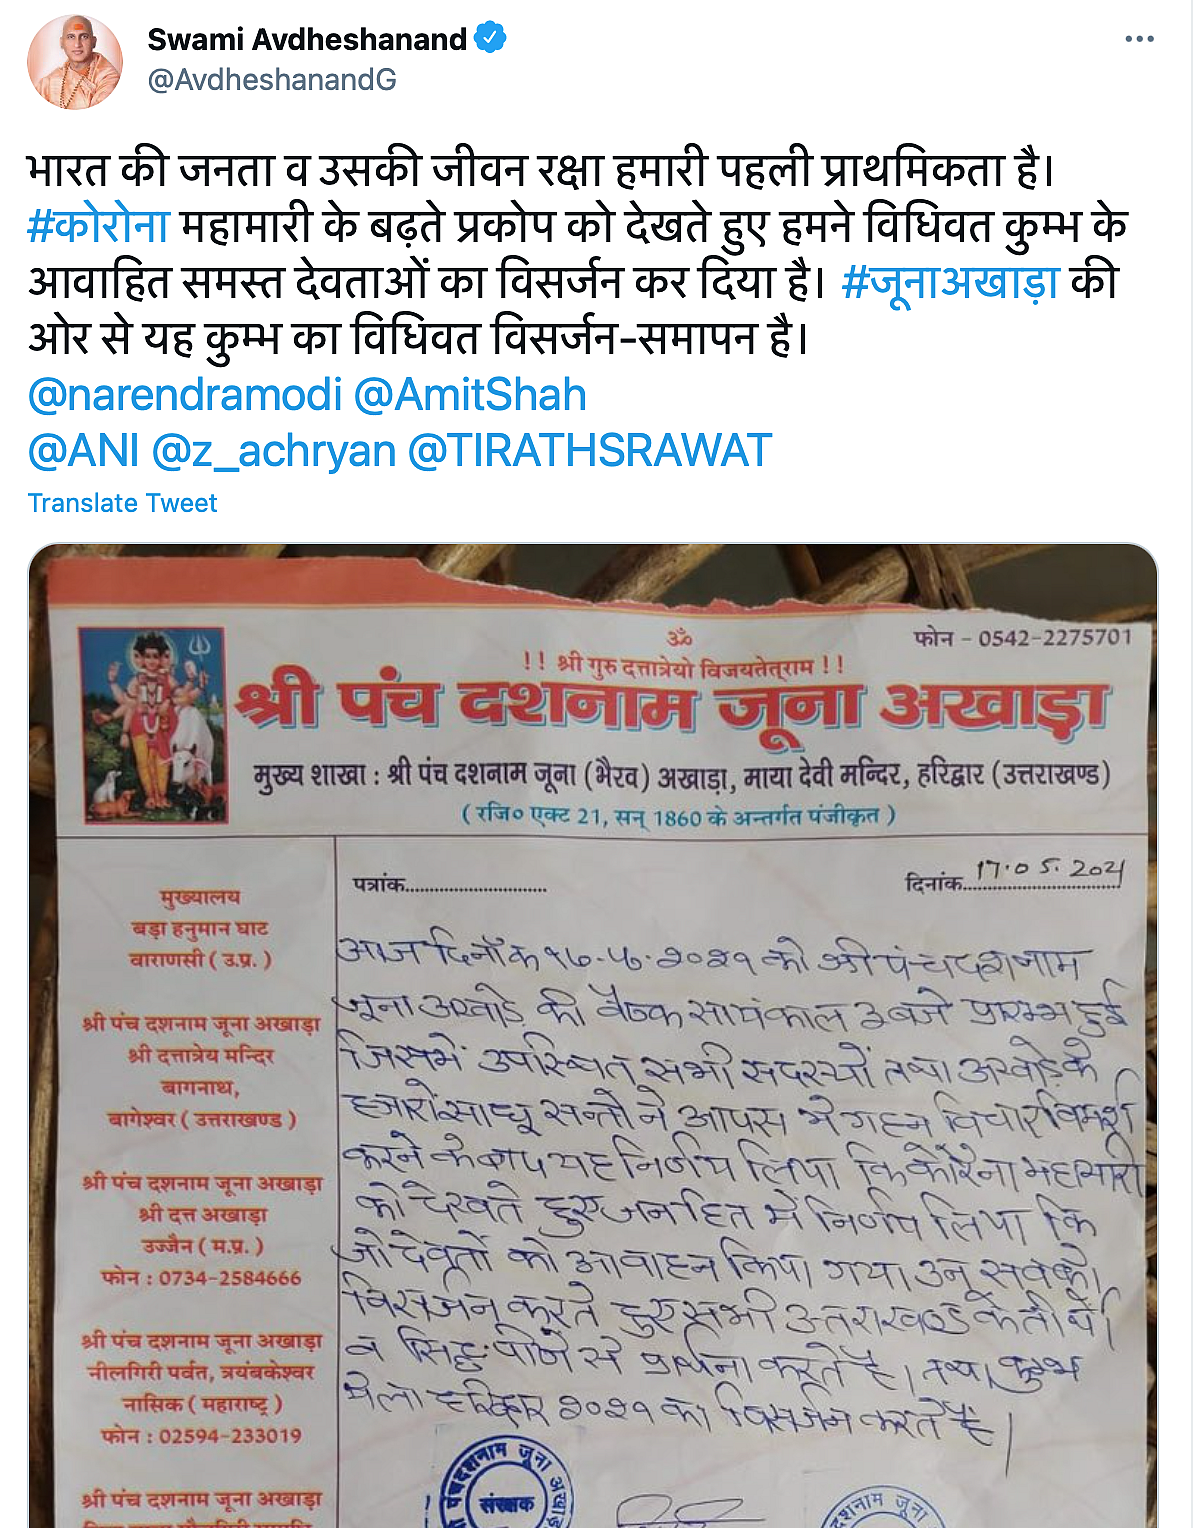 Swami Avdheshanand
@AvdheshanandG
भारत की जनता व उसकी जीवन रक्षा हमारी पहली प्राथमिकता है।
#कोरोना महामारी के बढ़ते प्रकोप को देखते हुए हमने विधिवत कुम्भ के
आवाहित समस्त देवताओं का विसर्जन कर दिया है। #जूनाअखाड़ा की
ओर से यह कुम्भ का विधिवत विसर्जन-समापन है।
@narendramodi @AmitShah
@ANI @z_achryan @TIRATHSRAWAT
Translate Tweet
ॐ
फोन - 0542-2275701
!! श्री गुरु दत्तात्रेयो विजयतेत्राम !!
श्री पंच दशनाम जूना अखाड़ा
मुख्य शाखा : श्री पंच दशनाम जूना (भैरव) अखाड़ा, माया देवी मन्दिर, हरिद्वार (उत्तराखण्ड)
(रजि० एक्ट 21, सन् 1860 के अन्तर्गत पंजीकृत )
पत्रांक
दिनांक 17.05.2021
मुख्यालय
बड़ा हनुमान घाट
वाराणसी ( उ.प्र. )
श्री पंच दशनाम जूना अखाड़ा
श्री दत्तात्रेय मन्दिर
बागनाथ,
बागेश्वर ( उत्तराखण्ड )
श्री पंच दशनाम जूना अखाड़ा
श्री दत्त अखाड़ा
उज्जैन ( म.प्र. )
फोन : 0734-2584666
श्री पंच दशनाम जूना अखाड़ा
नीलगिरी पर्वत, त्रयंबकेश्वर
नासिक ( महाराष्ट्र )
फोन : 02594-233019
श्री पंच दशनाम जूना अखाड़ा
आज दिनाँक को श्री पंचदशनाम
जूना अखाड़े की बैठक सायंकाल बजे प्रारम्भ हुई
जिसमें उपस्थित सभी सदस्यों तथा अखाड़े के
हजारों साधू सन्तों ने आपस मे गहन विचार विमर्श
करने के बाद यह निर्णय लिया कि कोरोना महामारी
को देखते हुए जनहित में निर्णय लिया कि
जो देवतों को आवाहन किया गया उन सबको
विसर्जन करते हुए सभी उत्तराखण्ड के तीर्थो
व सिद्ध पीठो से प्रार्थना करते है। तथा कुम्भ
मेला हरिद्वार २०२१ का विसर्जन करते हैं।
पंचदशनाम जूना अखाड़ा
संरक्षक
दशनाम जूना